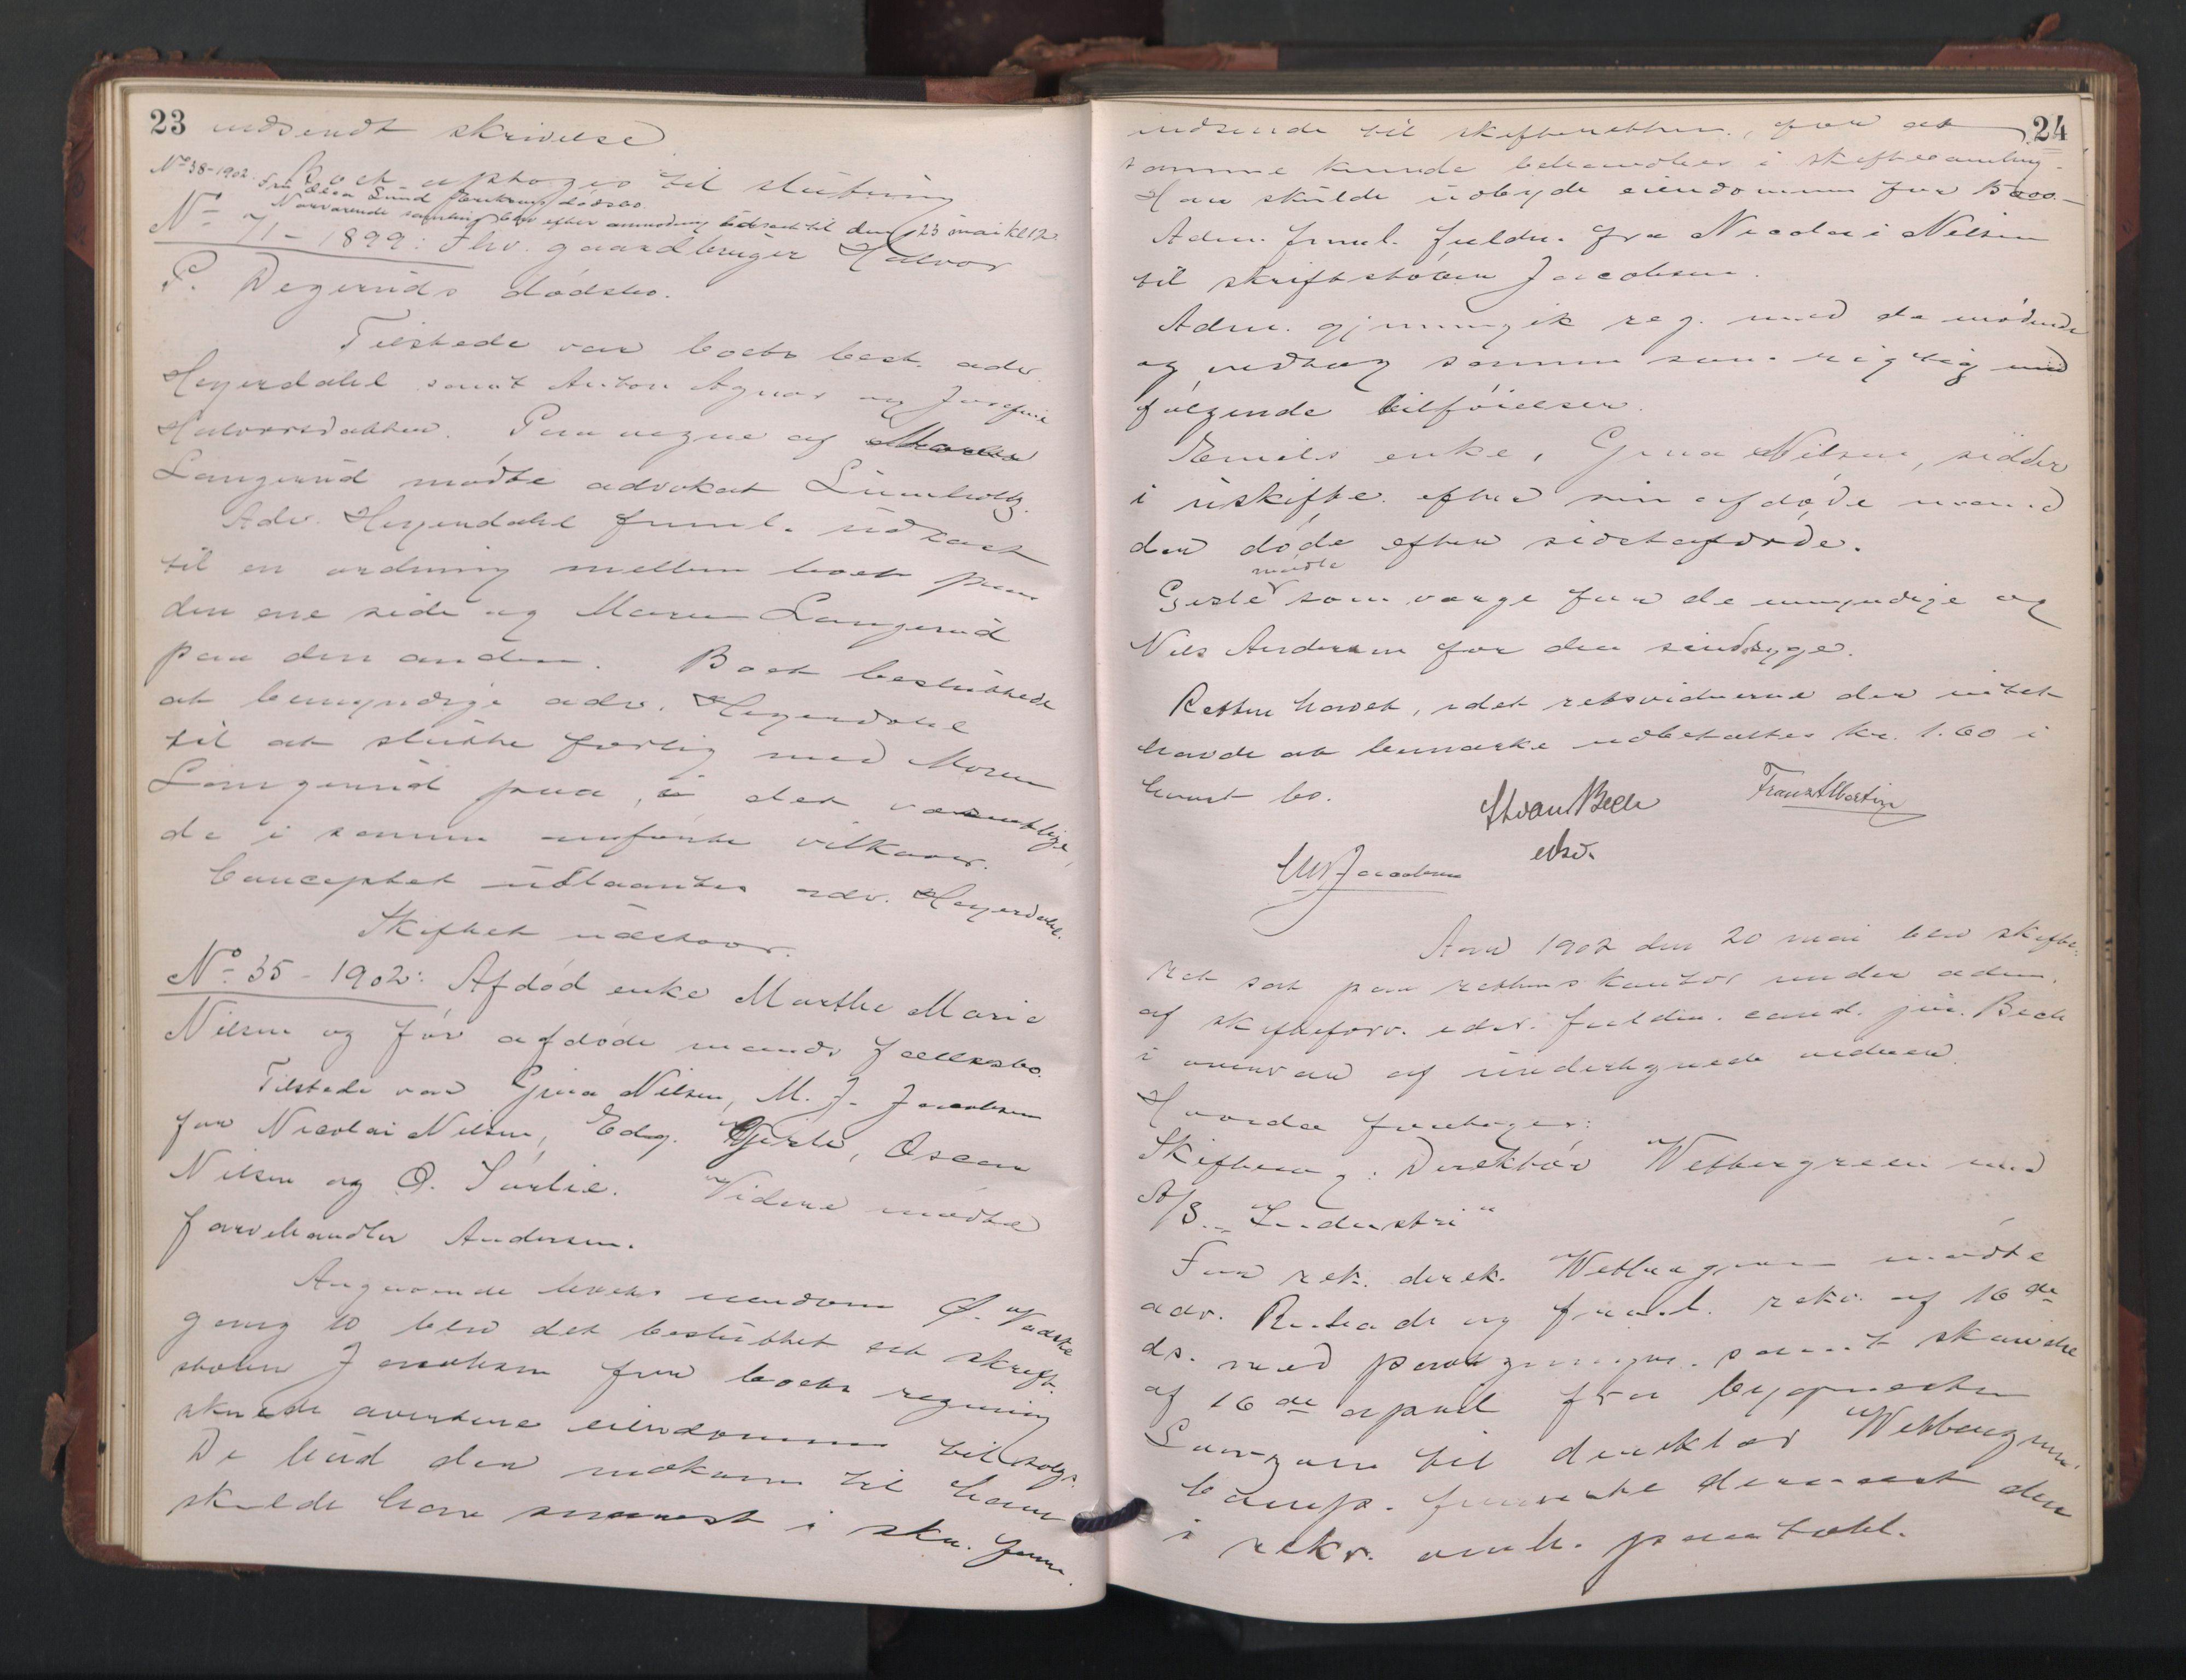 23
indsendt skrivelse
Boet optoges til slutning
No 38-1902. Fru Elea Lund dødsbo.
Nærværende samling blev efter anmodning udsat til den 23 mai kl 12
No 71 - 1899: Fhv. gaardbruger Halvor
P. Degeruds dødsbo.
Tilstede var boets best. adv.
Heyerdahl samt Anton Agnar og Josefine
Halvorsdatter. Paa vegne af Maren
Langerud mødte advokat Lumholtz.
Adv. Heyerdahl freml. udkast
til en ordning mellem boet paa
den ene side og Maren Langerud
paa den anden. Boet besluttede
at bemyndige adv. Heyerdahl
til at slutte forlig med Maren
Langerud paa, i det væsentlige,
de i samme anførte vilkaar.
Conceptet udlaantes adv. Heyerdahl.
Skiftet udestaar.
No 35 - 1902: Afdød enke Marthe Marie
Nilsen og før afdøde mands fællesbo.
Tilstede var Gina Nilsen, M. J. Jacobsen
for Nicolai Nilsen, Edg. Gjesle, Oscar
Nilsen og O. Sørlie. Videre mødte
farvehandler Andersen.
Angaaende boets eiendom Ø. Vadste
gang 10 blev det besluttet at skrift-
støber Jacobsen for boets regning
skulde avertere eiendommen tilsalgs.
De bud der indkom til ham
skulde han snarest i skr. form.
24
indsende til skifteretten, for at
samme kunde behandles i skiftesamling.
Han skulde udbyde eiendommen for
Adm. freml. fuldm. fra Nicolai Nilsen
til skriftstøber Jacobsen.
Adm. gjennemgik reg. med de mødende
og vedtog samme som rigtig med
følgende tilføielser.
Emils enke, Gina Nilsen, sidder
i uskifte efter sin afdøde mand
der døde efter sidstafdøde.
mødte
Gjesle som værge for de umyndige og
Nils Andersen for den sindssyge.
Retten hævet, idet retsvidnerne der intet
havde at bemærke udbetaltes kr. 1.60 i
hvert bo.
Franz Albertin
edsv.
M. Jacobsen
Aar 1902 den 20 mai blev skifte-
ret sat paa rettens kontor under adm.
af skifteforv. edsv. fuldm. cand. jur. Bech
i overvær af undertegnede vidner.
Hvorda foretoges:
Skiftesag: Direktør Wettergreen mod
A/S. "Industri"
For rek. direk. Wettergreen mødte
adv. og freml. rekv. af 16de
ds. med paategninger samt skrivelse
af 16de april fra bygmester
til direktør Wettergreen.
Comp. dernæst den
i rekv. omh. paastand.